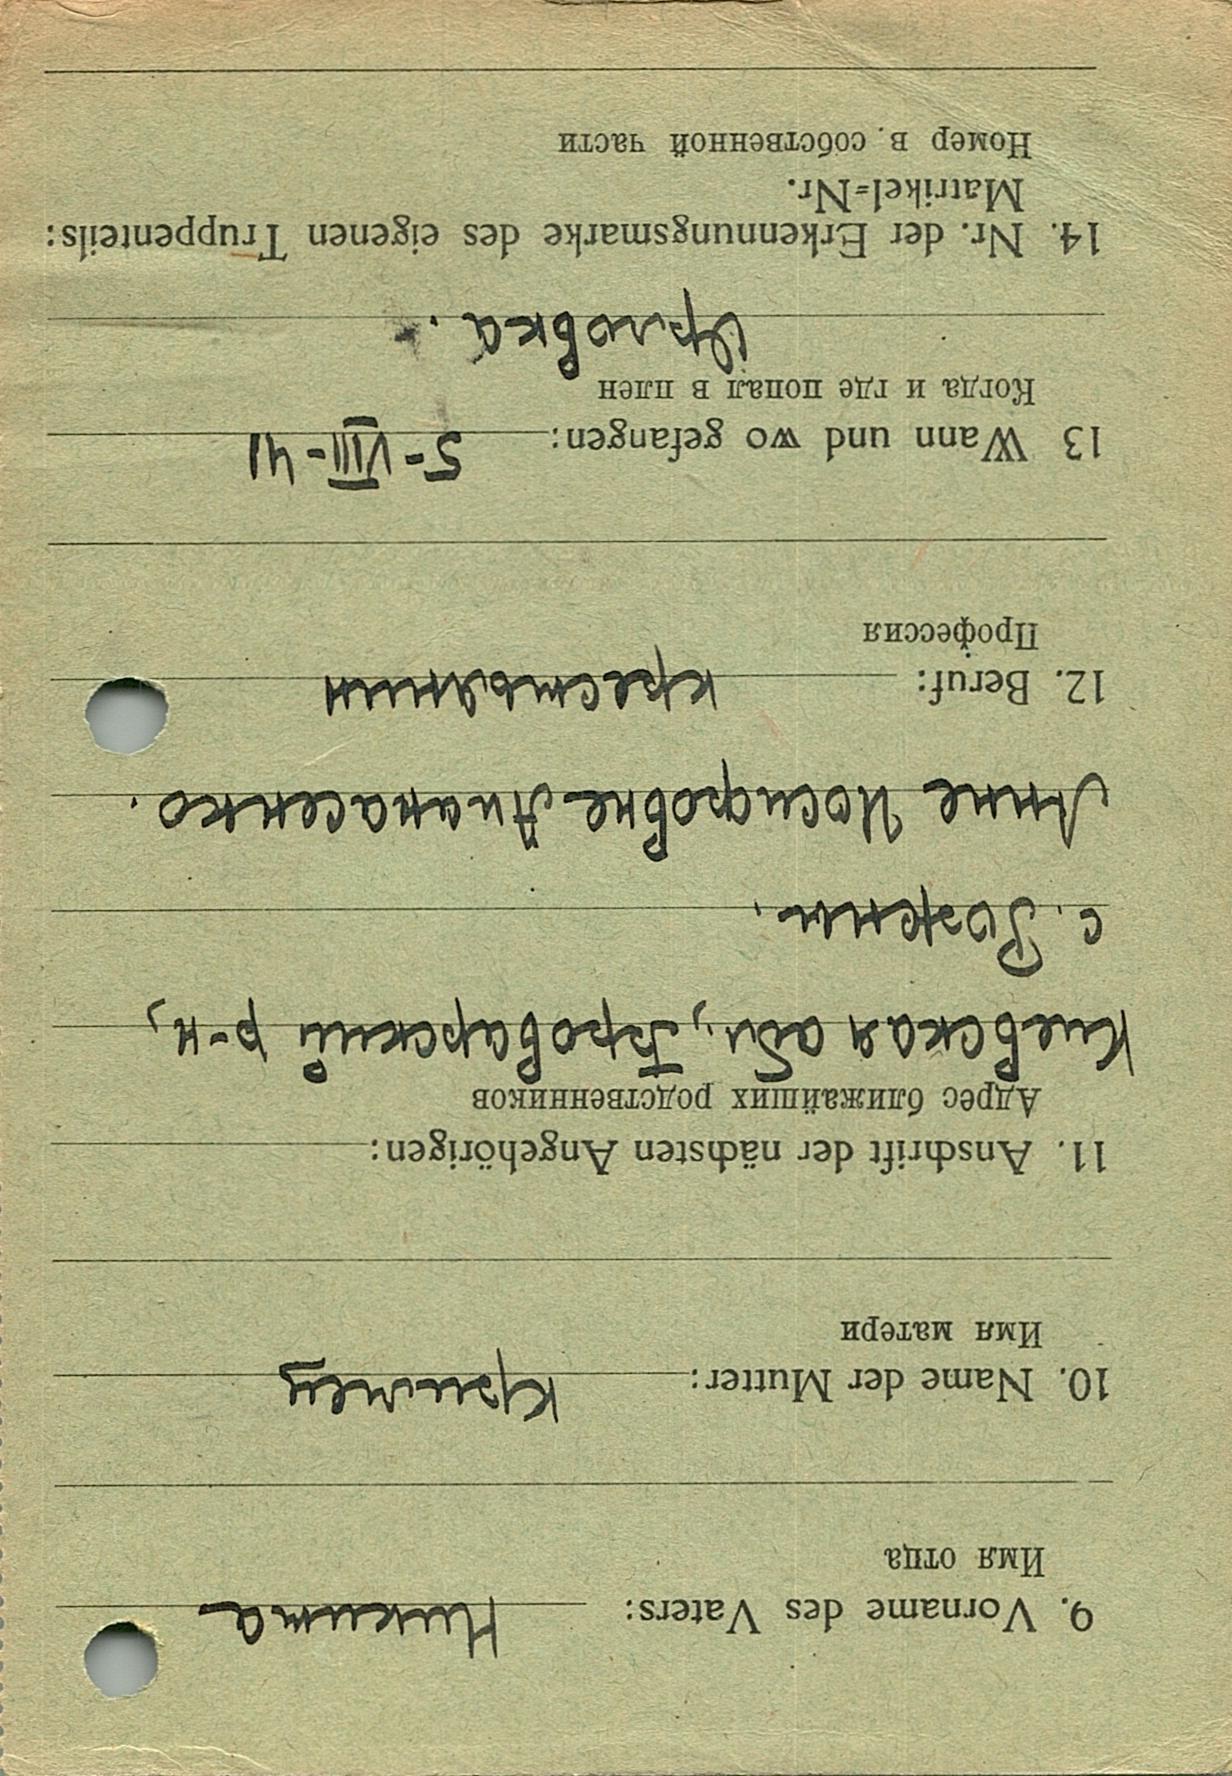 9. Vorname des Vaters: Никита
Имя отца
10. Name der Mutter: Кримец
Имя матери
11. Anschrift der nächsten Angehörigen:
Адрес ближайших родственников
Киевская обл., Броварский р-н,
с. Рожни.
Анне Носировне Апанасенко.
12. Beruf: крестьянин
Профессия
13 Wann und wo gefangen: 5-VIII-41
Когда и где попал в плен
Орловка.
14. Nr. der Erkennungsmarke des eigenen Truppenteils:
Matrikel=Nr.
Номер в собственной части